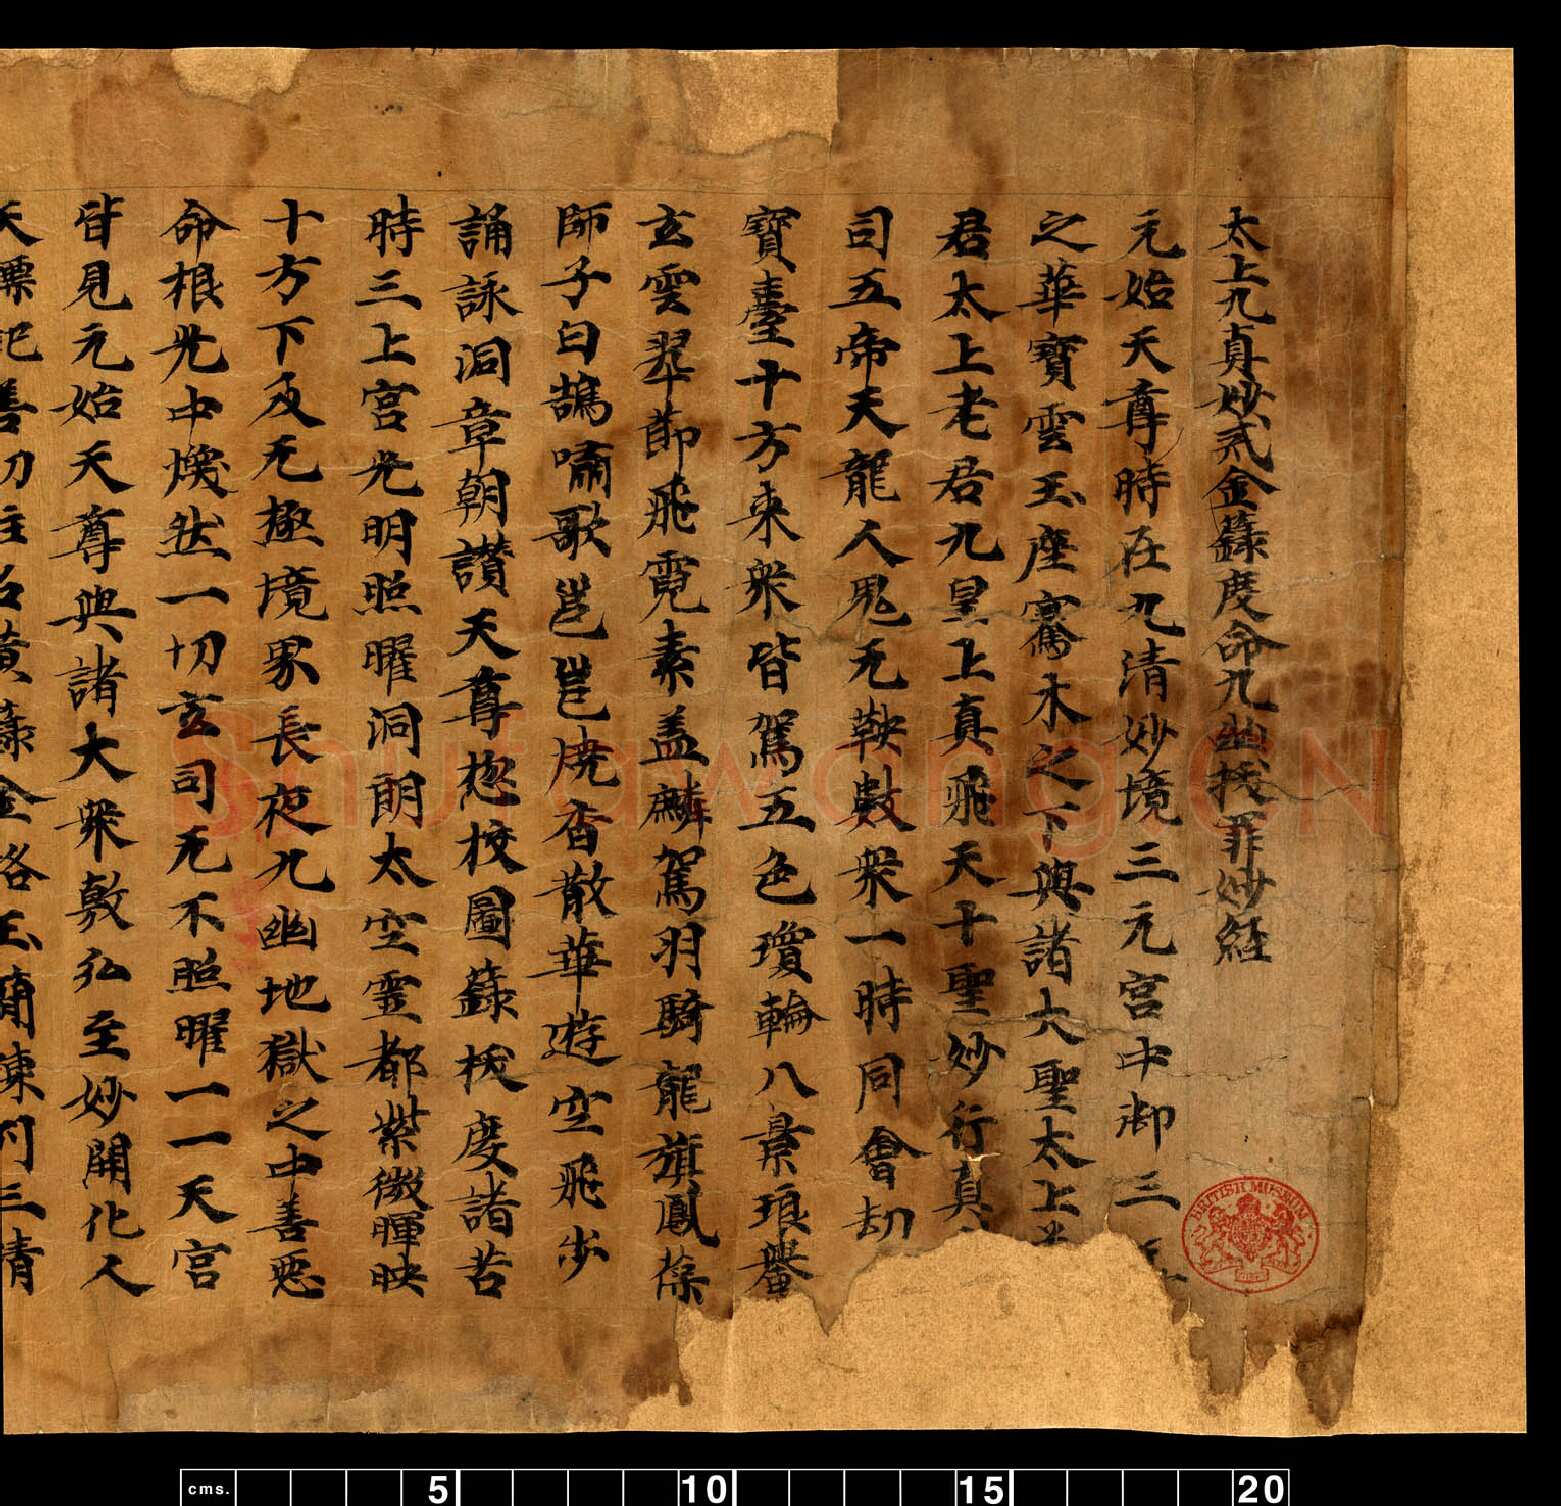 太上九真妙戒金籙度命九幽拔罪妙經
元始天尊時在九清妙境三元宫中御三
之華寶雲玉座騫木之下與諸大聖太上
君太上老君九皇上真飛天十聖妙行真
司五帝天龍人鬼无鞅數衆一時同會劫
寶臺十方来衆皆駕五色瓊輪八景琅轝
玄雲翠節飛霓素盖麟駕羽騎龍旗鳳葆
師子白鵠嘯歌邕邕燒香散華遊空飛步
誦詠洞章朝讃天尊惣校圖籙拔度諸苦
時三上宫光明照曜洞朗太空霊都紫微暉映
十方下及无極境界長夜九幽地獄之中善惡
命根光中煥然一切玄司无不照曜一一天宫
皆見元始天尊與諸大衆敷弘至妙開化人
天 善 黄籙金格玉簡 三清
BRITISH MUSEUM
Shufawang.CN
cms. 5 10 15 20